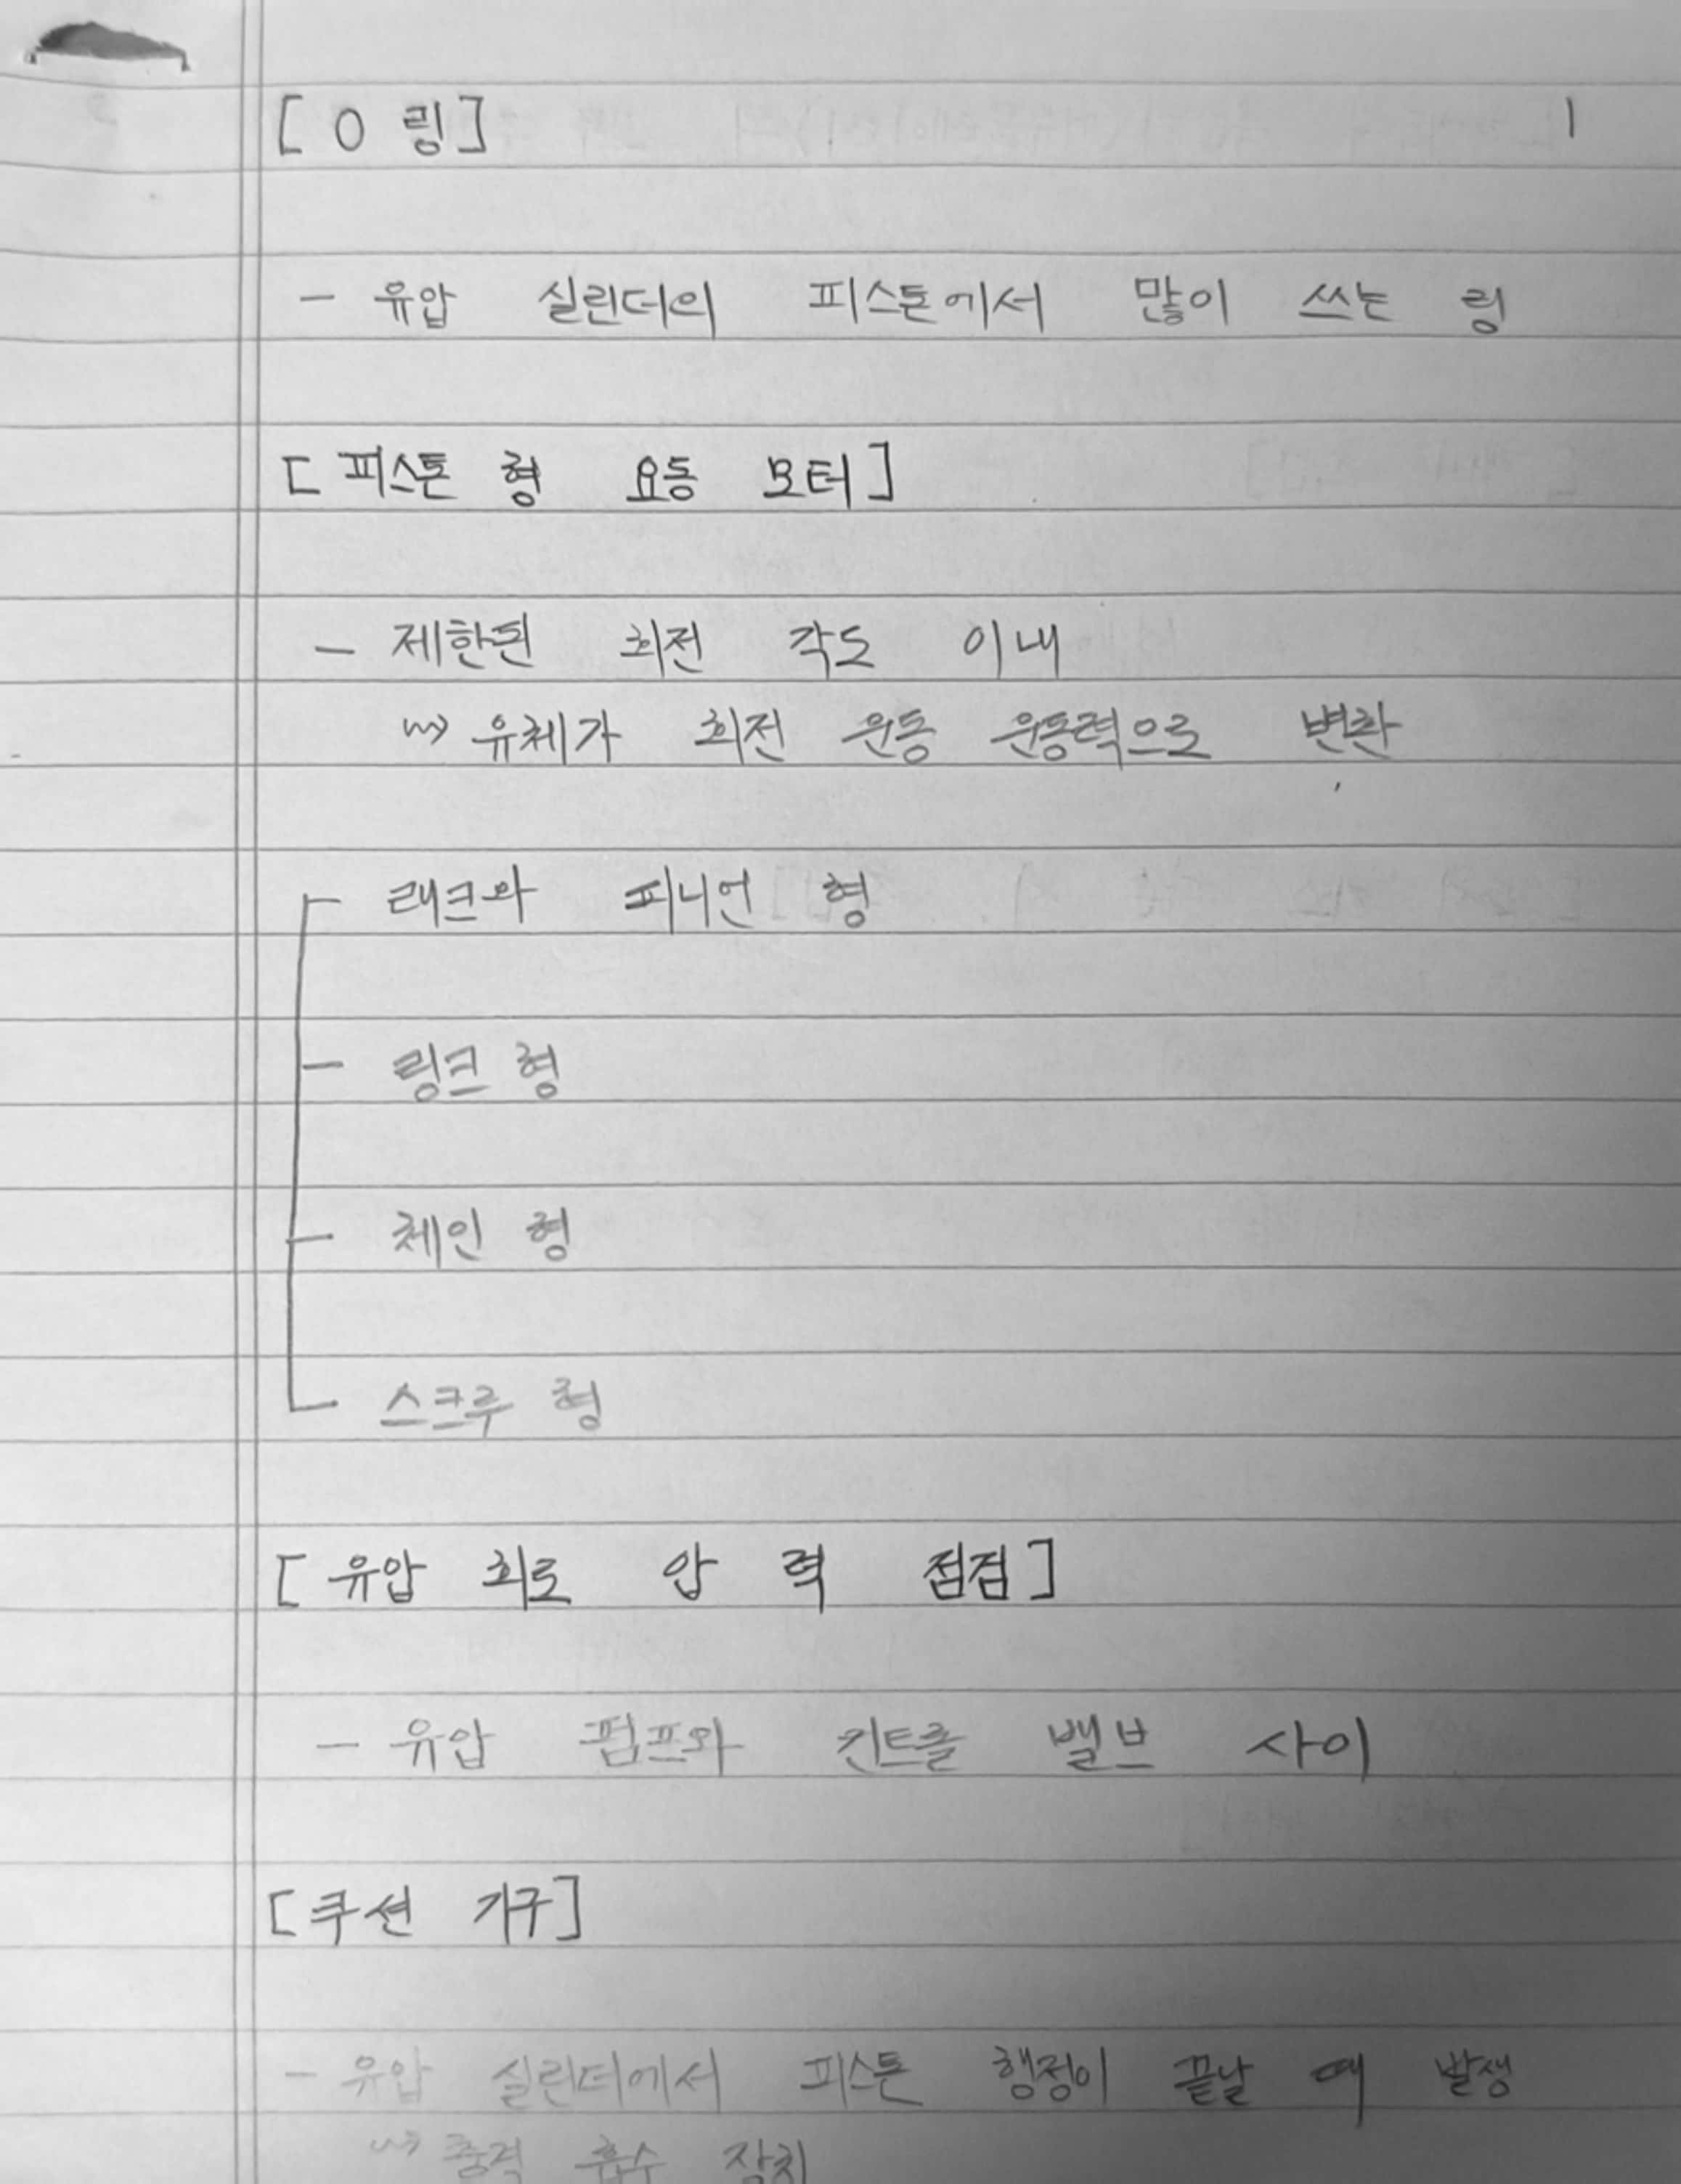 [ O 링 ] 1
- 유압 실린더의 피스톤에서 많이 쓰는 링
[ 피스톤 형 요동 모터 ]
- 제한된 회전 각도 이내
↝ 유체가 회전 운동 운동력으로 변환
래크와 피니언 형
링크 형
체인 형
스크루 형
[ 유압 회로 압 력 점검 ]
- 유압 펌프와 컨트롤 밸브 사이
[ 쿠션 기구 ]
- 유압 실린더에서 피스톤 행정이 끝날 때 발생
↝ 충격 흡수 장치